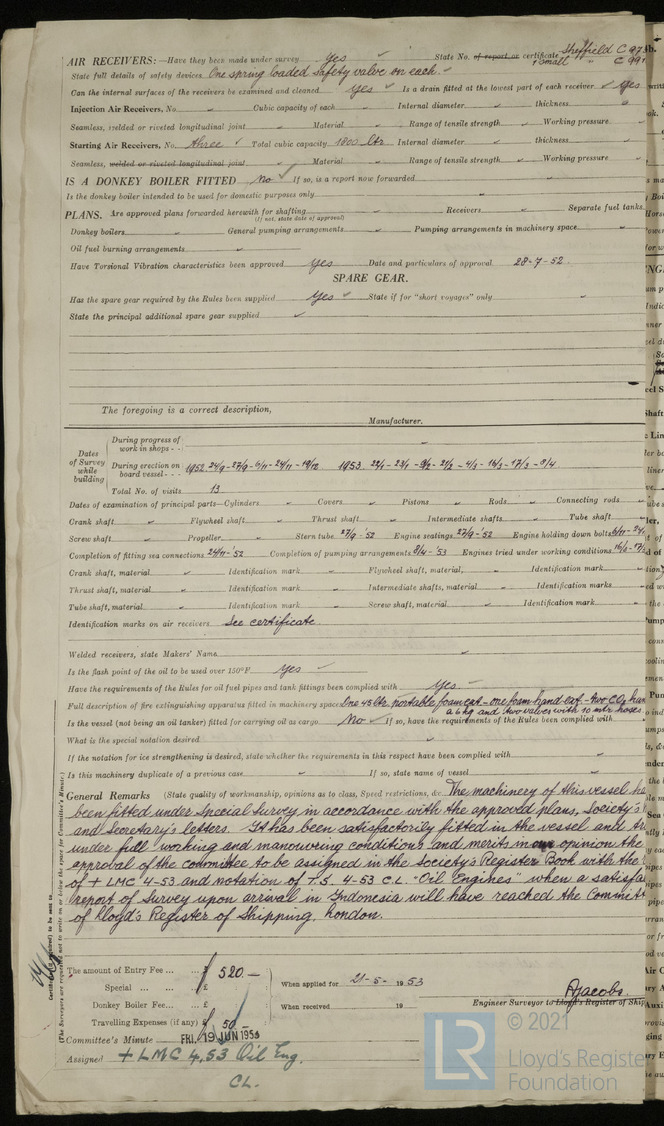 AIR RECEIVERS:—Have they been made under survey Yes State No. of report or certificate Sheffield C 97
1 Small " C 99
State full details of safety devices One spring loaded safety valve on each
Can the internal surfaces of the receivers be examined and cleaned Yes Is a drain fitted at the lowest part of each receiver Yes
Injection Air Receivers, No. Cubic capacity of each Internal diameter thickness
Seamless, welded or riveted longitudinal joint Material Range of tensile strength Working pressure
Starting Air Receivers, No. three Total cubic capacity 1800 ltr. Internal diameter thickness
Seamless, welded or riveted longitudinal joint Material Range of tensile strength Working pressure
IS A DONKEY BOILER FITTED No If so, is a report now forwarded
Is the donkey boiler intended to be used for domestic purposes only
PLANS. Are approved plans forwarded herewith for shafting Receivers Separate fuel tanks
(If not, state date of approval)
Donkey boilers General pumping arrangements Pumping arrangements in machinery space
Oil fuel burning arrangements
Have Torsional Vibration characteristics been approved yes Date and particulars of approval 28-7-52
SPARE GEAR.
Has the spare gear required by the Rules been supplied Yes State if for "short voyages" only
State the principal additional spare gear supplied
The foregoing is a correct description,
Manufacturer.
Dates of Survey while building
During progress of work in shops - -
During erection on board vessel - - - 1952 24/9 - 27/9 - 6/11 - 24/11 - 19/12 1953 22/1 - 23/1 - 9/2 - 21/2 - 4/3 - 16/3 - 17/3 - 8/4
Total No. of visits 13
Dates of examination of principal parts—Cylinders Covers Pistons Rods Connecting rods
Crank shaft Flywheel shaft Thrust shaft Intermediate shafts Tube shaft
Screw shaft Propeller Stern tube 27/9-'52 Engine seatings 27/9-'52 Engine holding down bolts 6/11-24/
Completion of fitting sea connections 24/11-'52 Completion of pumping arrangements 8/4-'53 Engines tried under working conditions 16/3-17/3
Crank shaft, material Identification mark Flywheel shaft, material, Identification mark
Thrust shaft, material Identification mark Intermediate shafts, material Identification marks
Tube shaft, material Identification mark Screw shaft, material Identification mark
Identification marks on air receivers See certificate
Welded receivers, state Makers' Name
Is the flash point of the oil to be used over 150°F. Yes
Have the requirements of the Rules for oil fuel pipes and tank fittings been complied with Yes
Full description of fire extinguishing apparatus fitted in machinery spaces One 45 ltr. portable foam ext - one foam hand ext. - two CO2 han
a 6 kg and two valves with 10 mtr hoses.
Is the vessel (not being an oil tanker) fitted for carrying oil as cargo No If so, have the requirements of the Rules been complied with
What is the special notation desired
If the notation for ice strengthening is desired, state whether the requirements in this respect have been complied with
Is this machinery duplicate of a previous case If so, state name of vessel
General Remarks (State quality of workmanship, opinions as to class, Speed restrictions, &c. The machinery of this vessel ha
been fitted under Special Survey in accordance with the approved plans, Society's
and Secretary's letters. It has been satisfactorily fitted in the vessel and tr
under full working and manouvring conditions and merits in our opinion the
approval of the committee to be assigned in the Society's Register Book with the
of + LMC 4-53 and notation of T.S. 4-53 C.L. "Oil Engines" when a satisfa
report of Survey upon arrival in Indonesia will have reached the Committ
of Lloyd's Register of Shipping, London.
(The Surveyors are requested not to write on or below the space for Committee's Minute.)
The amount of Entry Fee ... ... £ 520.—
Special ... ... £
Donkey Boiler Fee... ... £
Travelling Expenses (if any) £ 50
When applied for 21-5- 1953
When received 19
AJacobs.
Engineer Surveyor to Lloyd's Register of Ship
Committee's Minute FRI. 19 JUN 1953
Assigned + LMC 4.53 Oil Eng.
CL.
LR
© 2021
Lloyd's Register
Foundation